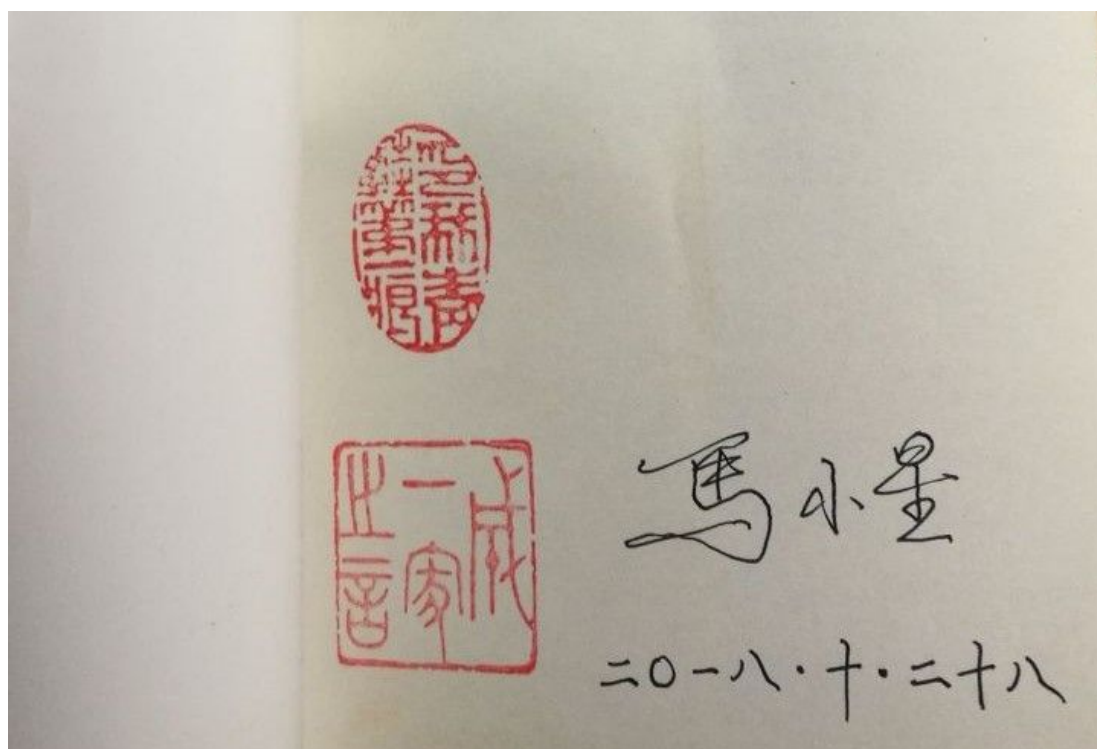 成一家之言
馬小星
二〇一八·十·二十八